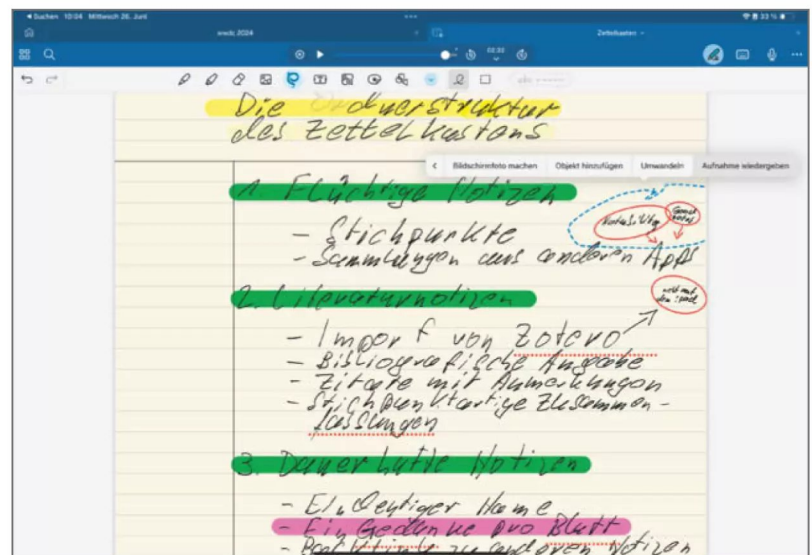 Suchen 10:04 Mittwoch 26. Juni
33 %
2024
Zettelkasten
02:32
Die Ordnerstruktur
des Zettelkastens
Bildschirmfoto machen Objekt hinzufügen Umwandeln Aufnahme wiedergeben
1. Flüchtige Notizen
Notability
Good
Notes
- Stichpunkte
- Sammlungen aus anderen Apps
2. Literaturnotizen
- Import von Zotero
- Bibliografische Angabe
- Zitate mit Anmerkungen
- Stichpunktartige Zusammen-
fassungen
3. Dauerhafte Notizen
- Eindeutiger Name
- Ein Gedanke pro Blatt
zu anderen Notizen